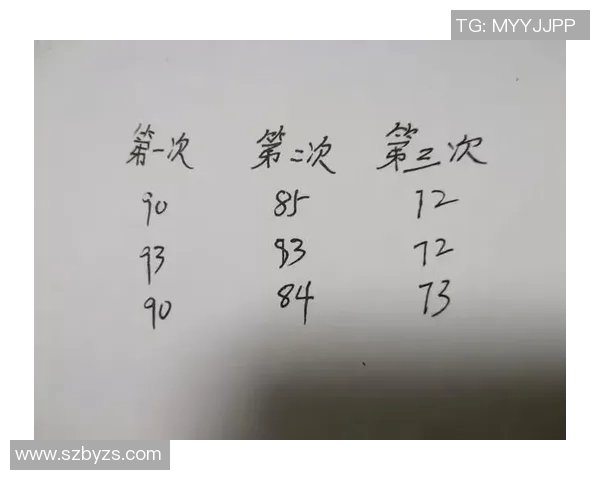 TG: MYYJJPP
第一次 第二次 第三次
90 85 72
93 83 72
90 84 73
www.szbyzs.com